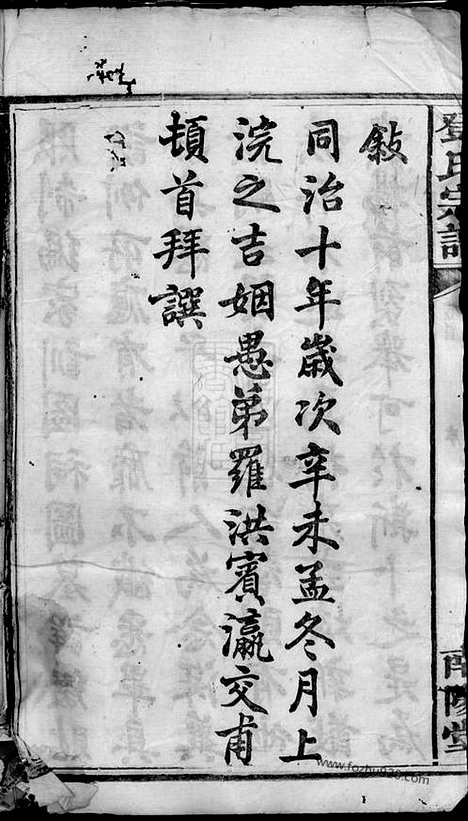 鄧氏宗譜
南陽堂
敍
同治十年歲次辛未孟冬月上
浣之吉姻愚弟羅洪賓瀛交甫
頓首拜譔
www.fozhu920.com